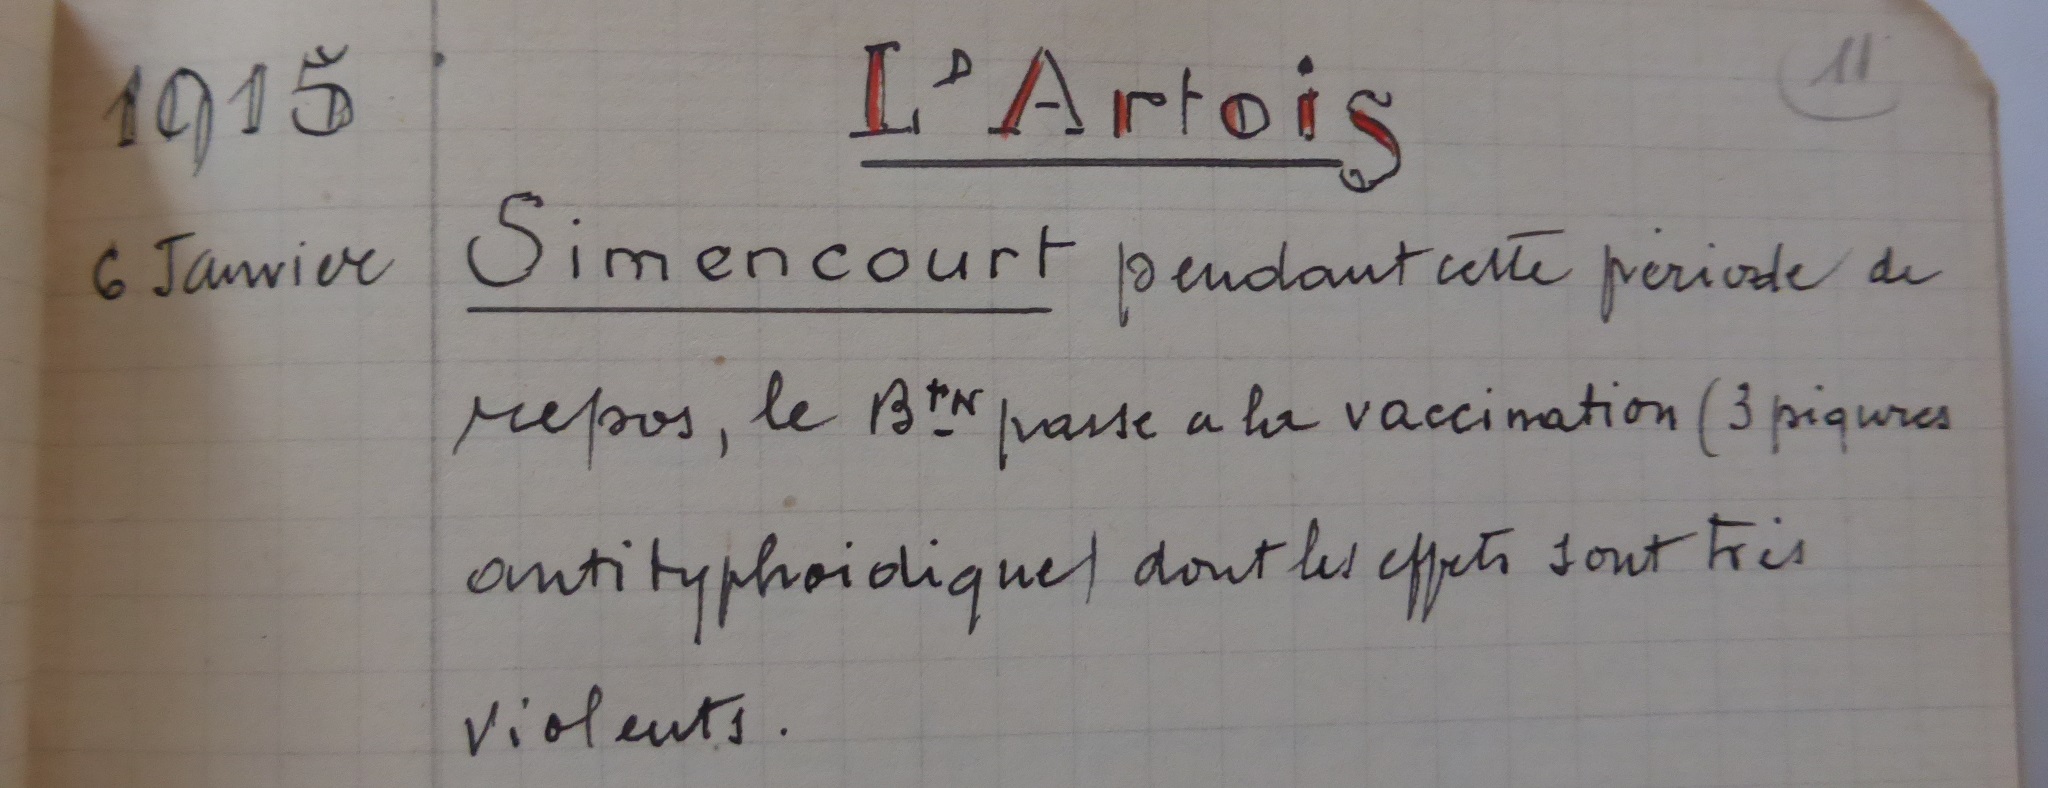 1915 L'Artois 11
6 Janvier Simencourt pendant cette période de
repos, le Btn passe a la vaccination (3 piqures
antityphoidique) dont les effets sont très
violents.